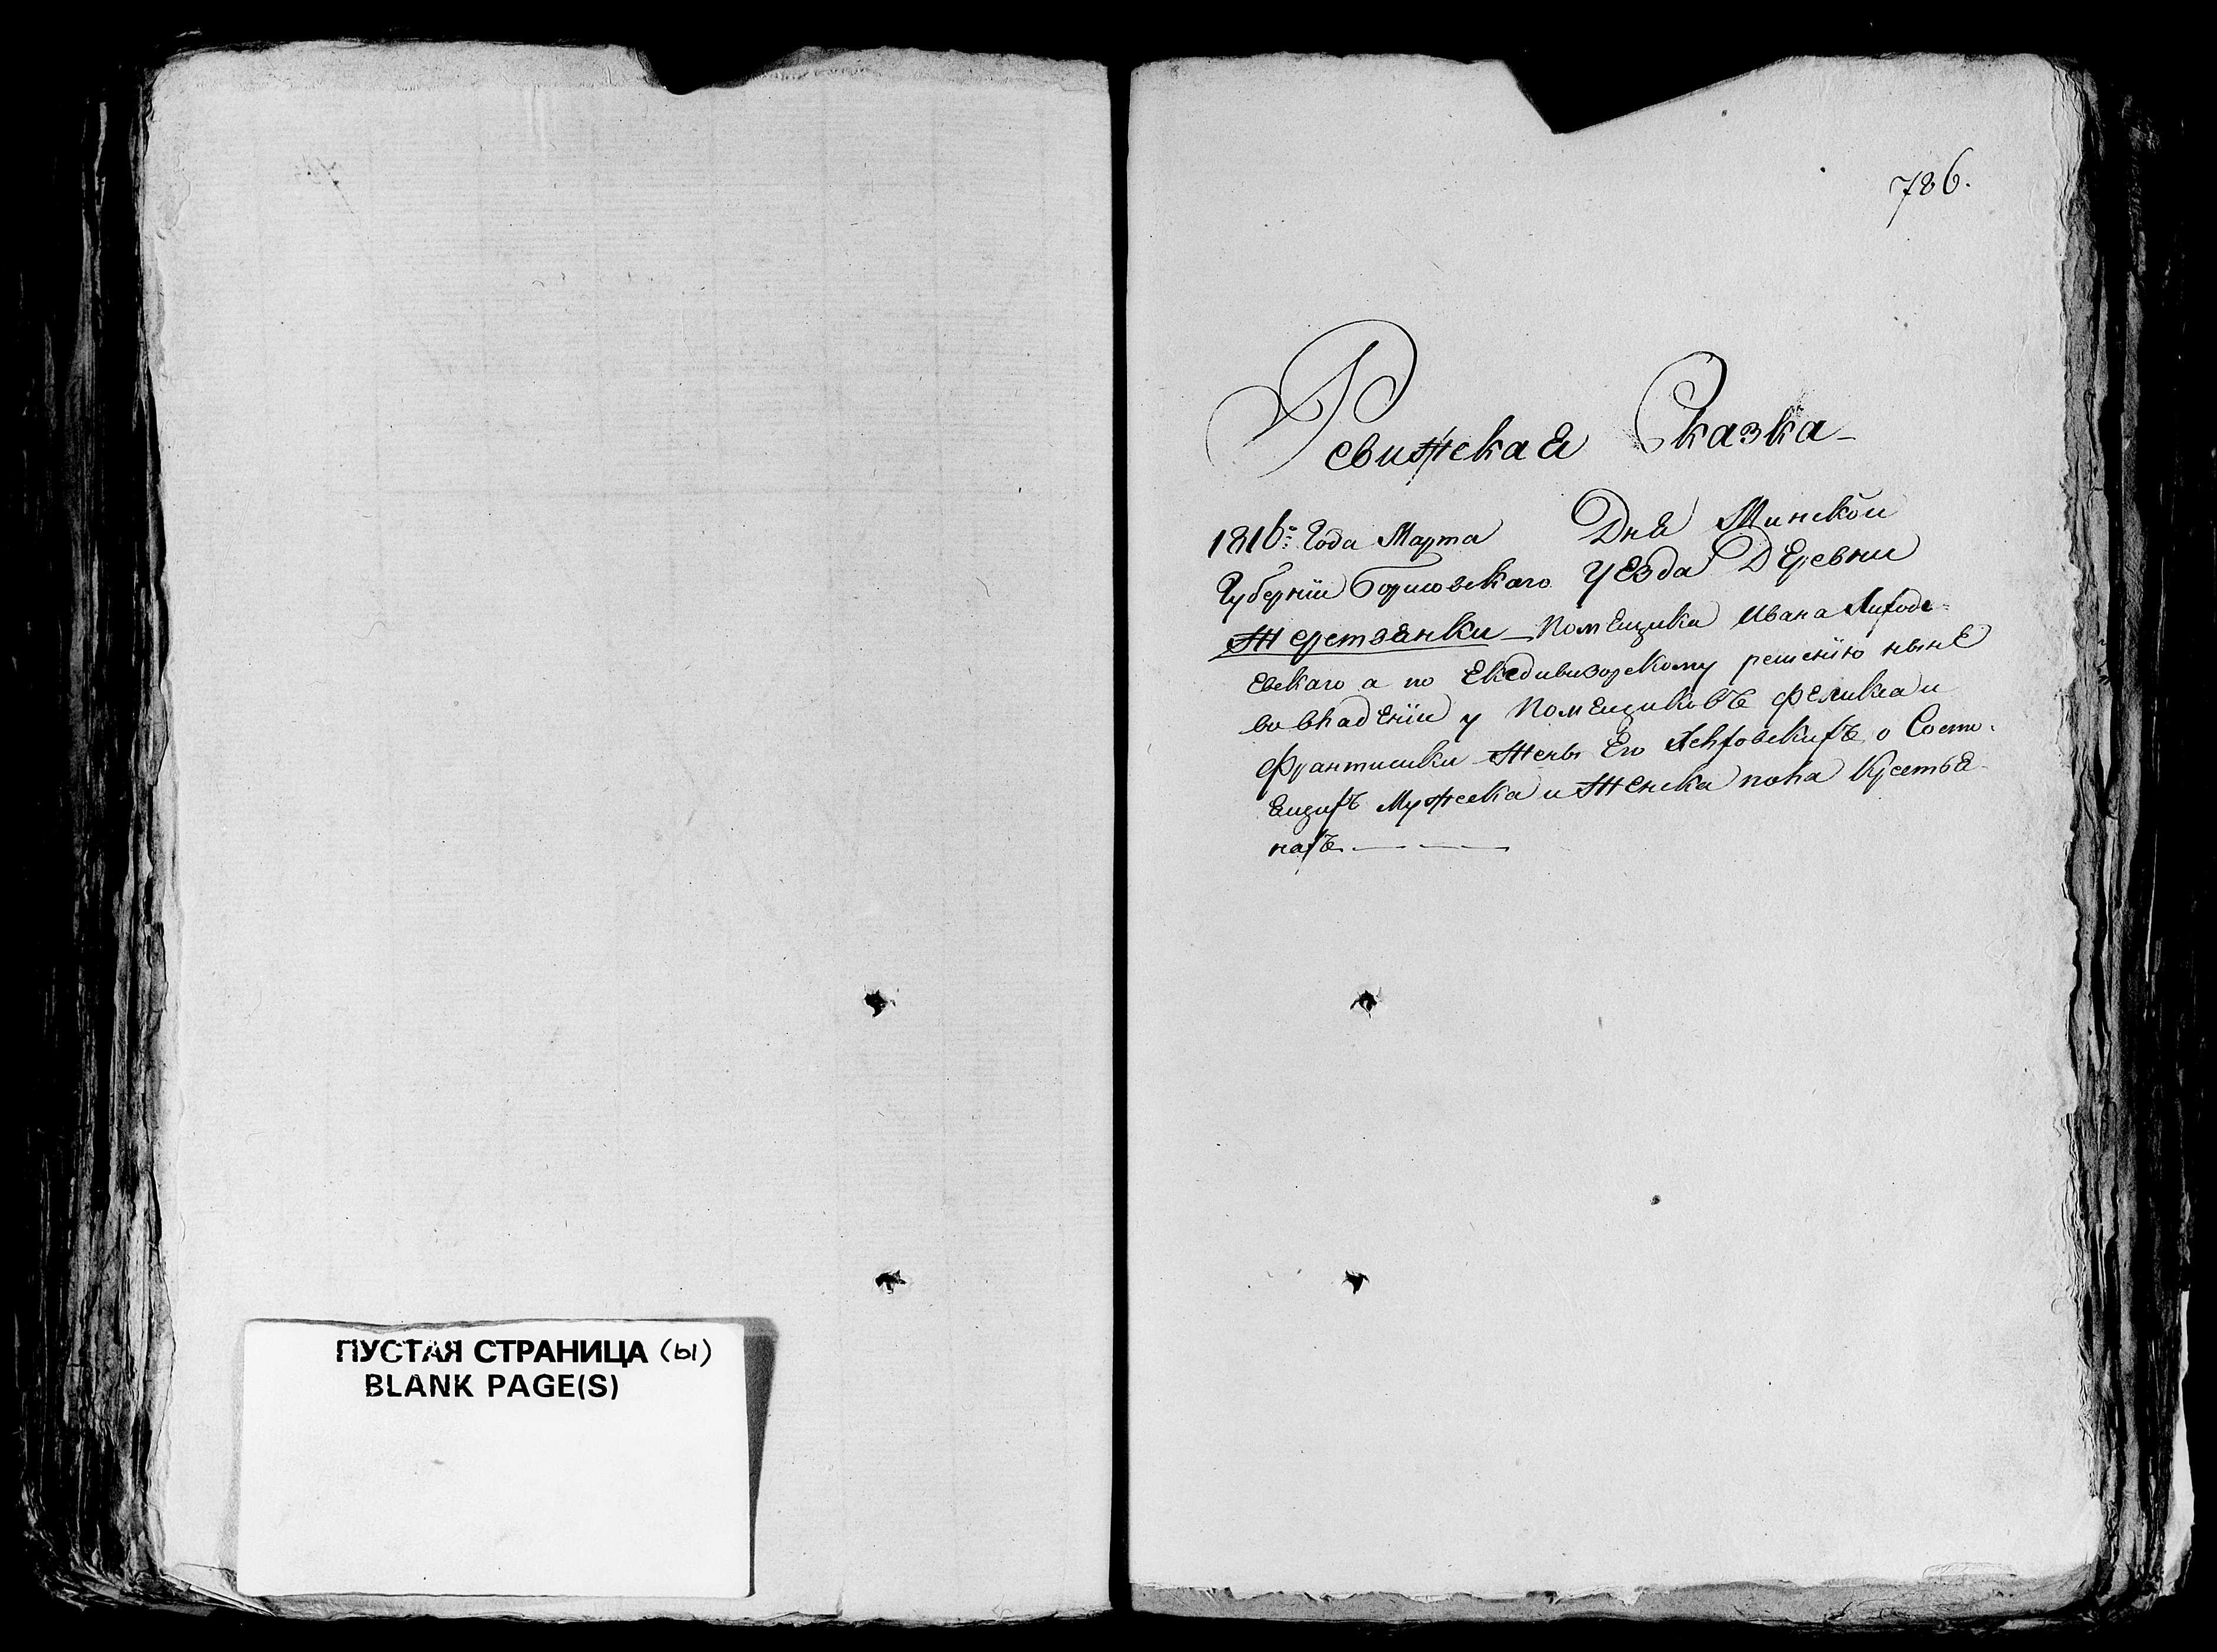 ПУСТАЯ СТРАНИЦА (ы)
BLANK PAGE(S)
786.
Ревижская Сказка
1816: Года Марта Дня Минской
Губернїи Борисовскаго Уезда Деревни
Жерствянки Помещика Ивана Лиходи=
евскаго а по Екедивизорскому решенїю ныне
во владенїи у Помещиковъ Феликса и
Франтишки Жены Его о Состо
ещихъ Мужска и Женска пола Крестья
нахъ